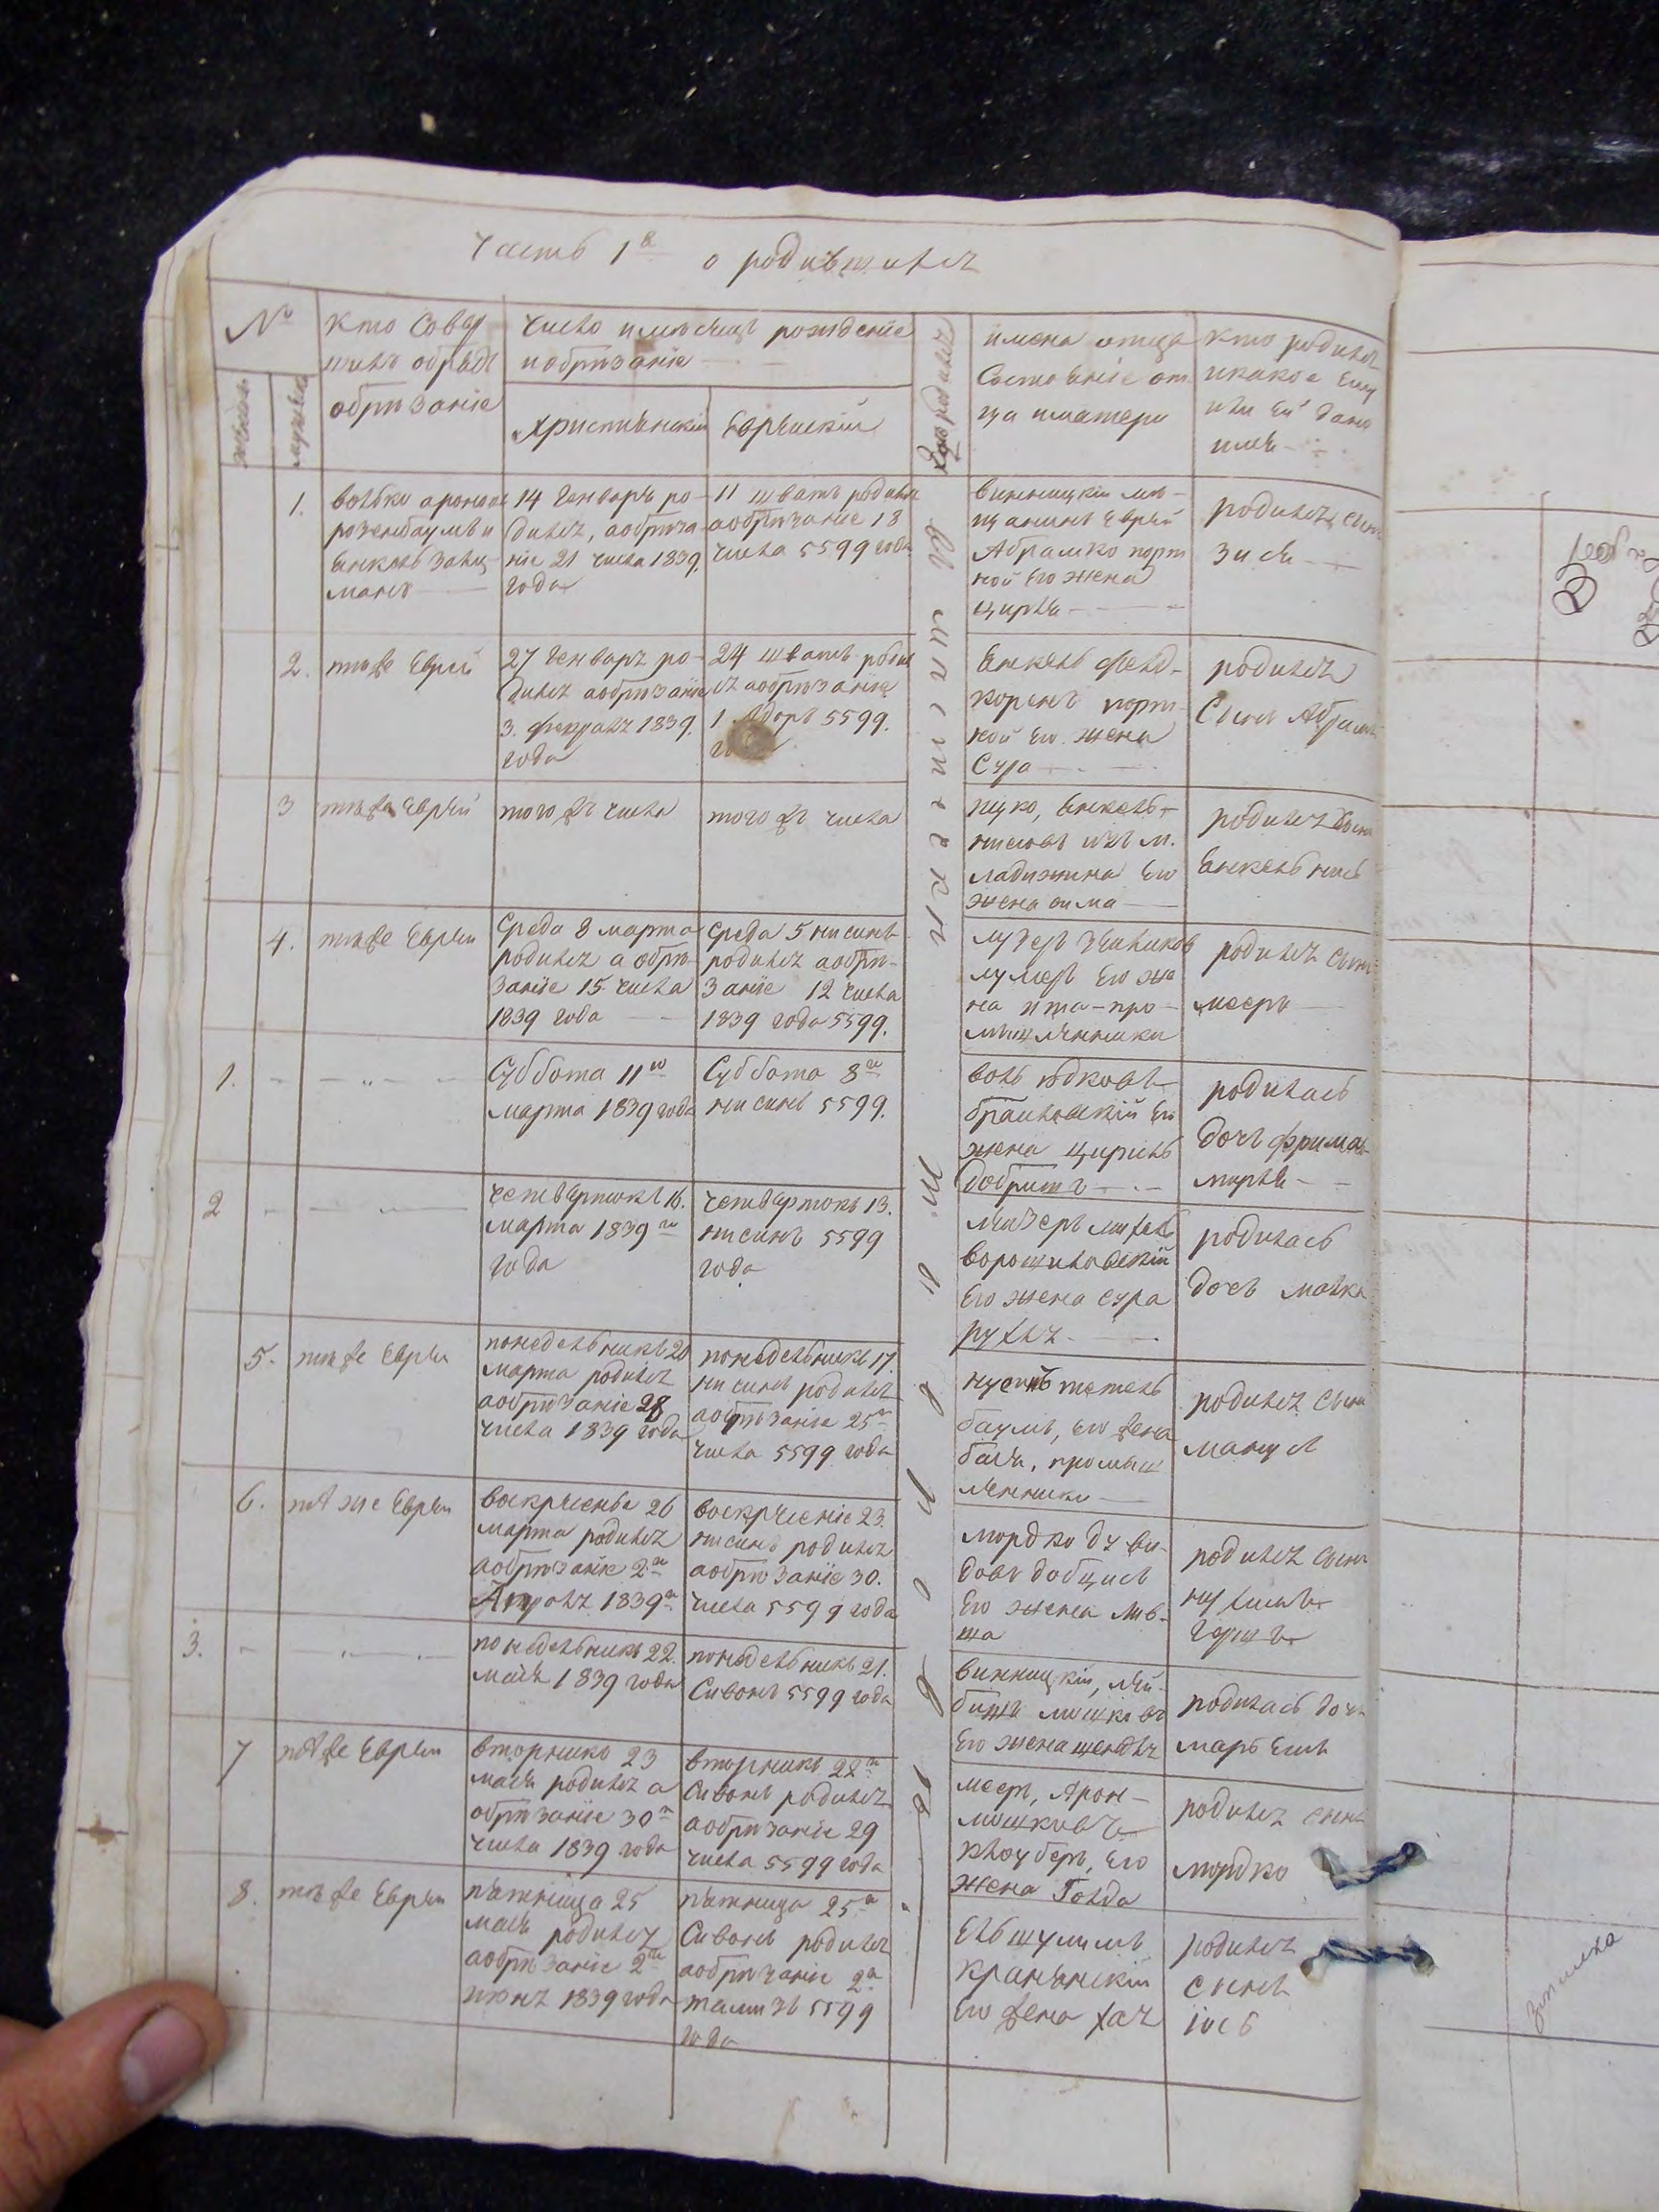 Часть 1я о родившихся
№
Кто совер
шилъ обрядъ
обрѣзанія
Число и мѣсяцъ рожденіе
и обрѣзаніе
Христіянскій
Еврейскій
женска
мужеска
Где родился
имена отца
Состояніе от
ца и матери
Кто родился
и какое ему
или ей дано
имя
1.
Волько Аронов
розенбаумъ и
Янкель Залц
манъ
14 Генваря ро-
дился, а обреза-
ніе 21 числа 1839.
года
11 шватъ родился
а обрѣзаніе 18
числа 5599 года
винницкій мѣ-
щанинъ Еврей
Абрамко порт
ной Его жена
цирля
родился сынъ
зися
2.
тѣже Евреи
27 Генваря ро-
дился а обрѣзаніе
3. февраля 1839.
года
24 шватъ родил
ся а обрѣзаніе
1 Адаръ 5599.
Янкель фелд-
коренъ порт
ной Его жена
Сура
родился
Сынъ Абрамъ
3
тѣже Евреи
того жъ числа
того жъ числа
ицко, Янкель
нисовъ изъ м.
ладижина Его
жена сима
родился сынъ
Янкель нись
4.
тѣже Евреи
Среда 8 марта
родился а обрѣ-
заніе 15 числа
1839 года
Среда 5 нисинъ
родился а обрѣ-
заніе 12 числа
1839 года 5599.
Его же
на ита - про-
мышленники
родился сынъ
мееръ
1.
Суббота 11го
марта 1839 года
Суббота 8го
нисинъ 5599.
воль юдковъ
браиловскій Его
жена цирель
добришъ
родилась
дочь фрима
мирля
2
четвертокъ 16.
марта 1839го
года
четвертокъ 13.
нисинъ 5599
года
лейзеръ
ворошиловскій
Его жена сура
рухля
родилась
дочь малка
5.
тѣже Евреи
понедельникъ 20
марта родился
а обрѣзаніе 28
числа 1839 года
понедельникъ 17.
нисинъ родился
а обрѣзаніе 25го
числа 5599 года
нусинъ тетель
баумъ, его жена
бася, промыш
ленники
родился сынъ
мануел
6.
тѣ же Евреи
воскресенье 26
марта родился
а обрѣзаніе 2го
Апреля 1839го
воскресеніе 23.
нисинъ родился
а обрѣзаніе 30.
числа 5599 года
мордко ду ви-
довъ
Его жена лив-
ша
родился сынъ
нухимъ
Гершъ
3.
понедельникъ 22.
мая 1839 года
понедельникъ 21.
Сивонъ 5599 года
винницкій, лей-
бишъ мошковъ
Его жена шендля
родилась дочь
марь
7
тѣже Евреи
вторникъ 23
мая родился а
обрѣзаніе 30го
числа 1839 года
вторникъ 22го
Сивонъ родился
а обрѣзаніе 29
числа 5599 года
меер, Арон-
мошковъ
клоуберъ, его
жена Голда
родился сынъ
мордко
8.
тѣже Евреи
пятница 25
мая родился
а обрѣзаніе 2го
июня 1839 года
пятница 25го
Сивонъ родился
а обрѣзаніе 2го
тамизъ 5599
года
Ель шулимъ
Крачанскій
Его жена хая
родился
сынъ
іось